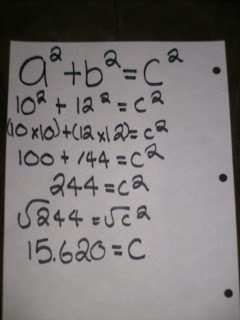 a²+b²=c²
10²+12²=c²
(10x10)+(12x12)=c²
100+144=c²
244=c²
√244=√c²
15.620=C